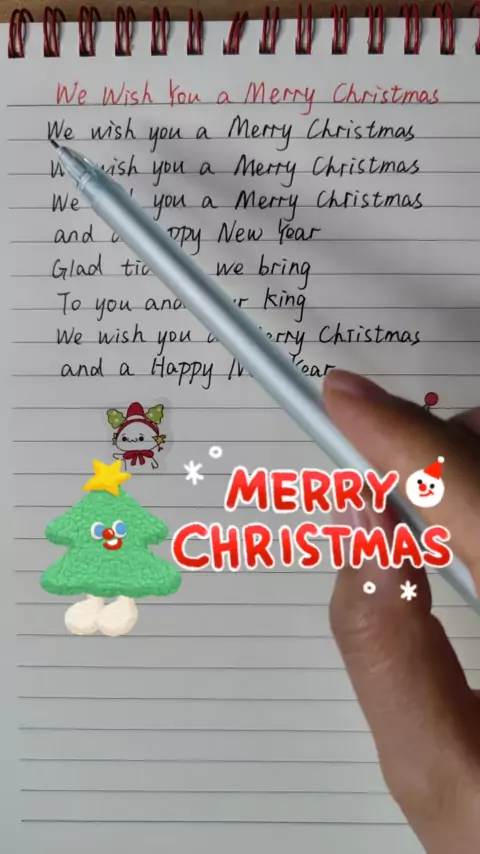 We Wish You a Merry Christmas
We wish you a Merry Christmas
We wish you a Merry Christmas
We you a Merry Christmas
and a New Year
Glad we bring
To you and King
We wish you a Merry Christmas
and a Happy Year
MERRY
CHRISTMAS